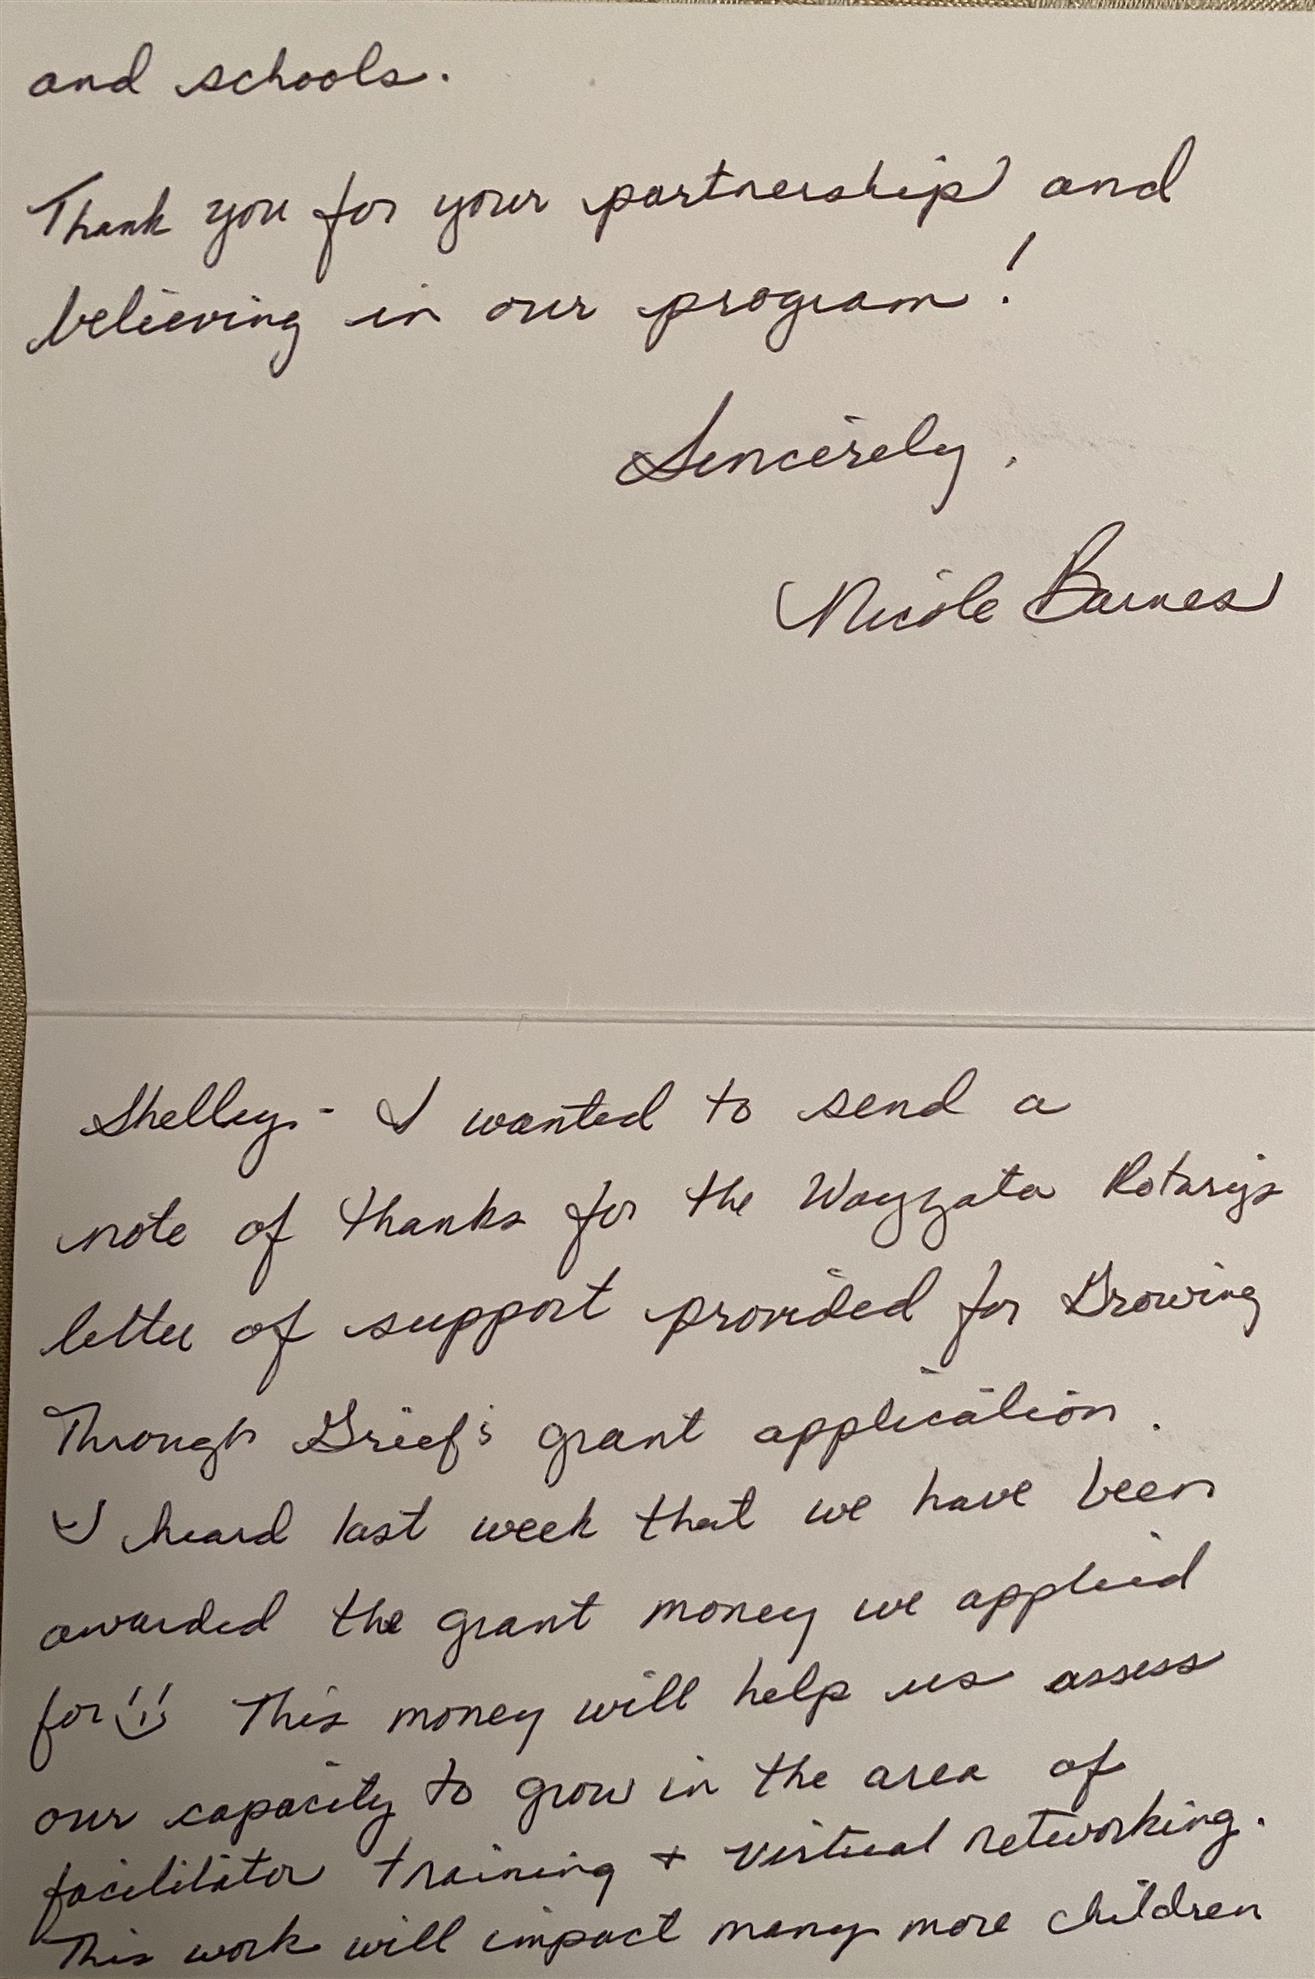 and schools.
Thank you for your partnership and
believing in our program!
Sincerely,
Nicole Barnes
Shelley - I wanted to send a
note of thanks for the Wayzata Rotary's
letter of support provided for Growing
Through Grief's grant application.
I heard last week that we have been
awarded the grant money we applied
for :) This money will help us assess
our capacity to grow in the area of
facilitator training + virtual networking.
This work will impact many more children